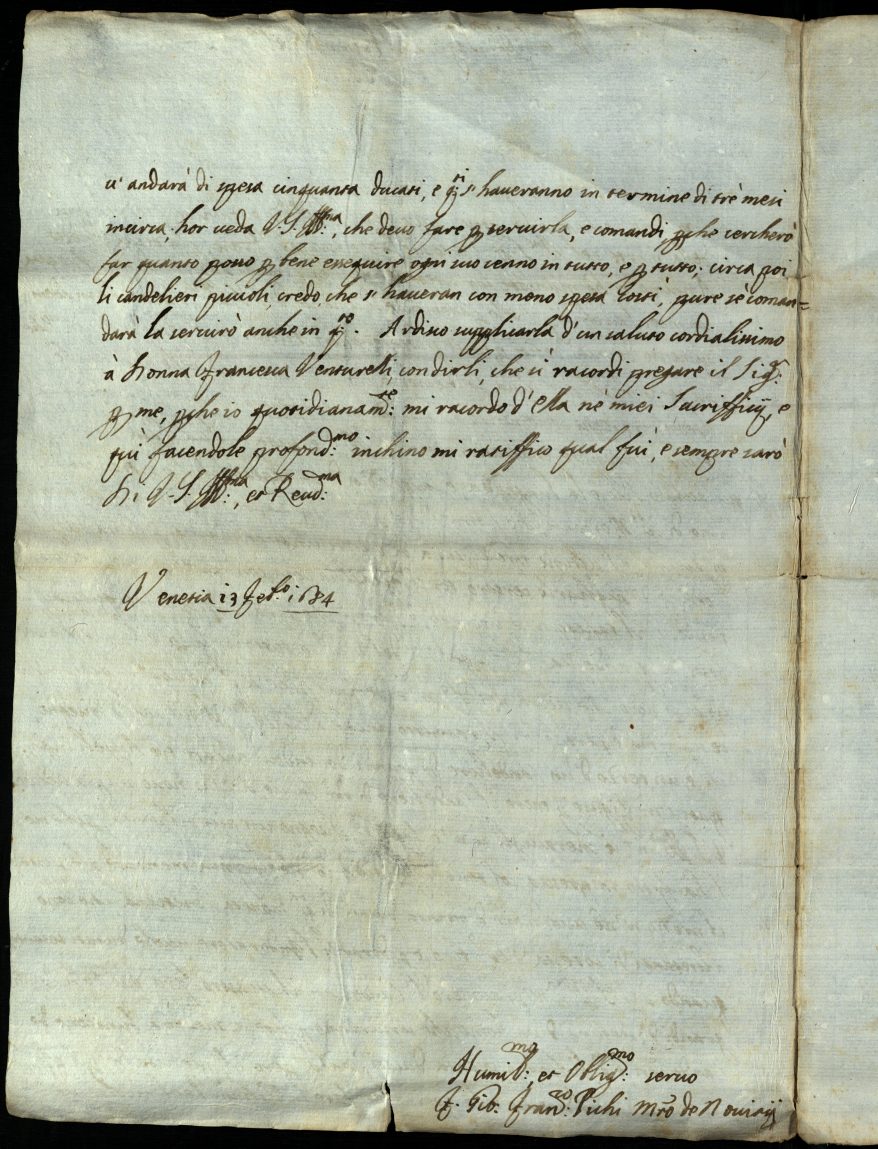 u' andarà di spesa cinquanta ducati, e q.sti s' haueranno in termine di trè mesi
incirca, hor ueda V.S. Ill.ma, che deuo fare p seruirla, e comandi pche cercherò
far quanto posso p bene esseguire ogni suo cenno in tutto, e p tutto; circa poi
li candelieri piccioli, credo, che s' haueran con meno spesa costì, pure sè coman=
darà la seruirò anche in q.to. Ardisco supplicarla d'un saluto cordialissimo
à Donna Francesca Venturelli, con dirli, che si racordi pregare il Sig.r
p me, pche io quotidianam.te: mi racordo d' Ella nè miei Sacrifficij, e
quì facendole profond.mo inchino mi ratiffico qual fui, e sempre sarò
Di V.S. Ill.ma, et Reud.ma
Venetia 13 Feb.o 1684
Humil.mo: et Oblig.mo: seruo
F. Gio. Fran.co: Pichi Mro de Nouitij